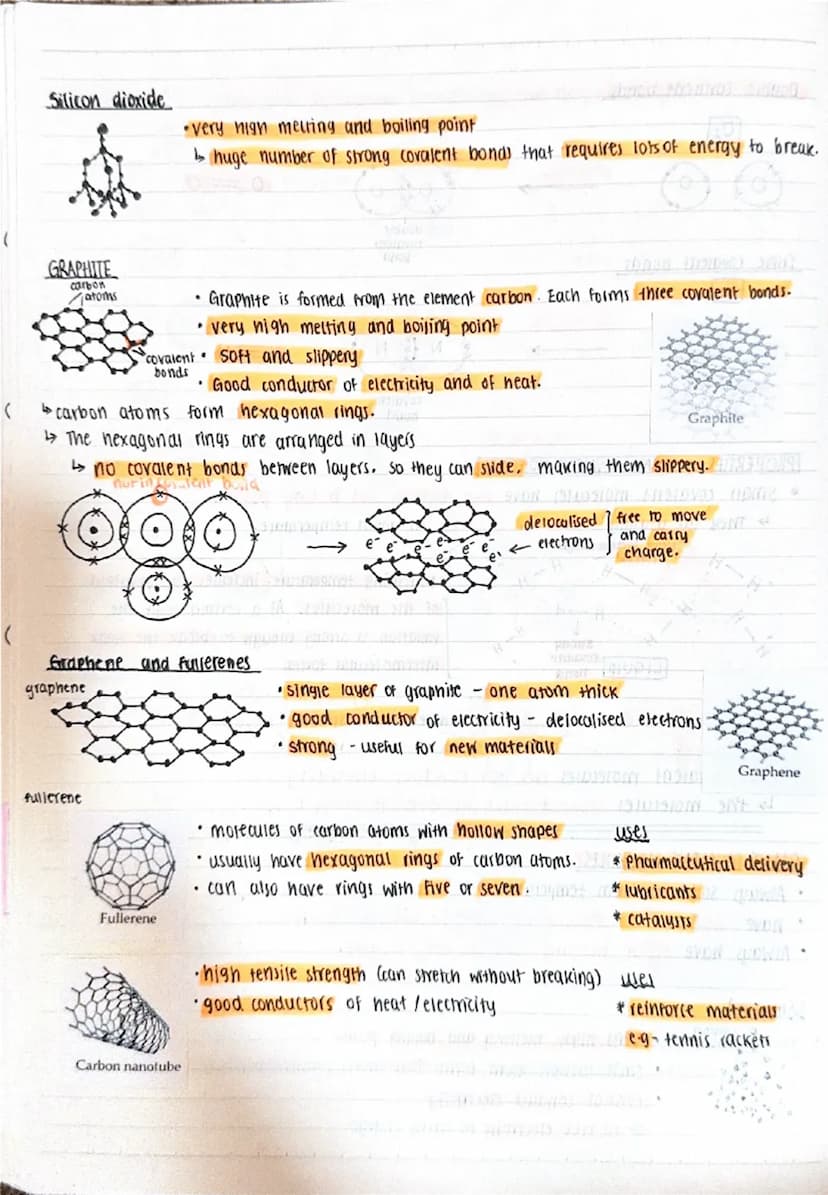 Silicon dioxide
• very high melting and boiling point
↳ huge number of strong covalent bonds that requires lots of energy to break.
GRAPHITE
carbon
atoms
covalent
bonds
• Graphite is formed from the element carbon. Each forms three covalent bonds.
• very high melting and boiling point
• soft and slippery
• Good conductor of electricity and of heat.
Graphite
↳ carbon atoms form hexagonal rings.
↳ The hexagonal rings are arranged in layers
↳ no covalent bonds between layers, so they can slide, making them slippery.
e⁻ e⁻ e⁻ e⁻ e⁻ e⁻ e⁻ e⁻
delocalised
electrons
free to move
and carry
charge.
Graphene and Fullerenes
graphene
• single layer of graphite - one atom thick
• good conductor of electricity - delocalised electrons
• strong - useful for new materials
Graphene
fullerene
Fullerene
• molecules of carbon atoms with hollow shapes
• usually have hexagonal rings of carbon atoms.
• can also have rings with five or seven.
uses
* Pharmaceutical delivery
* lubricants
* catalysts
Carbon nanotube
• high tensile strength (can stretch without breaking)
• good conductors of heat / electricity
uses
* reinforce materials
e.g - tennis rackets